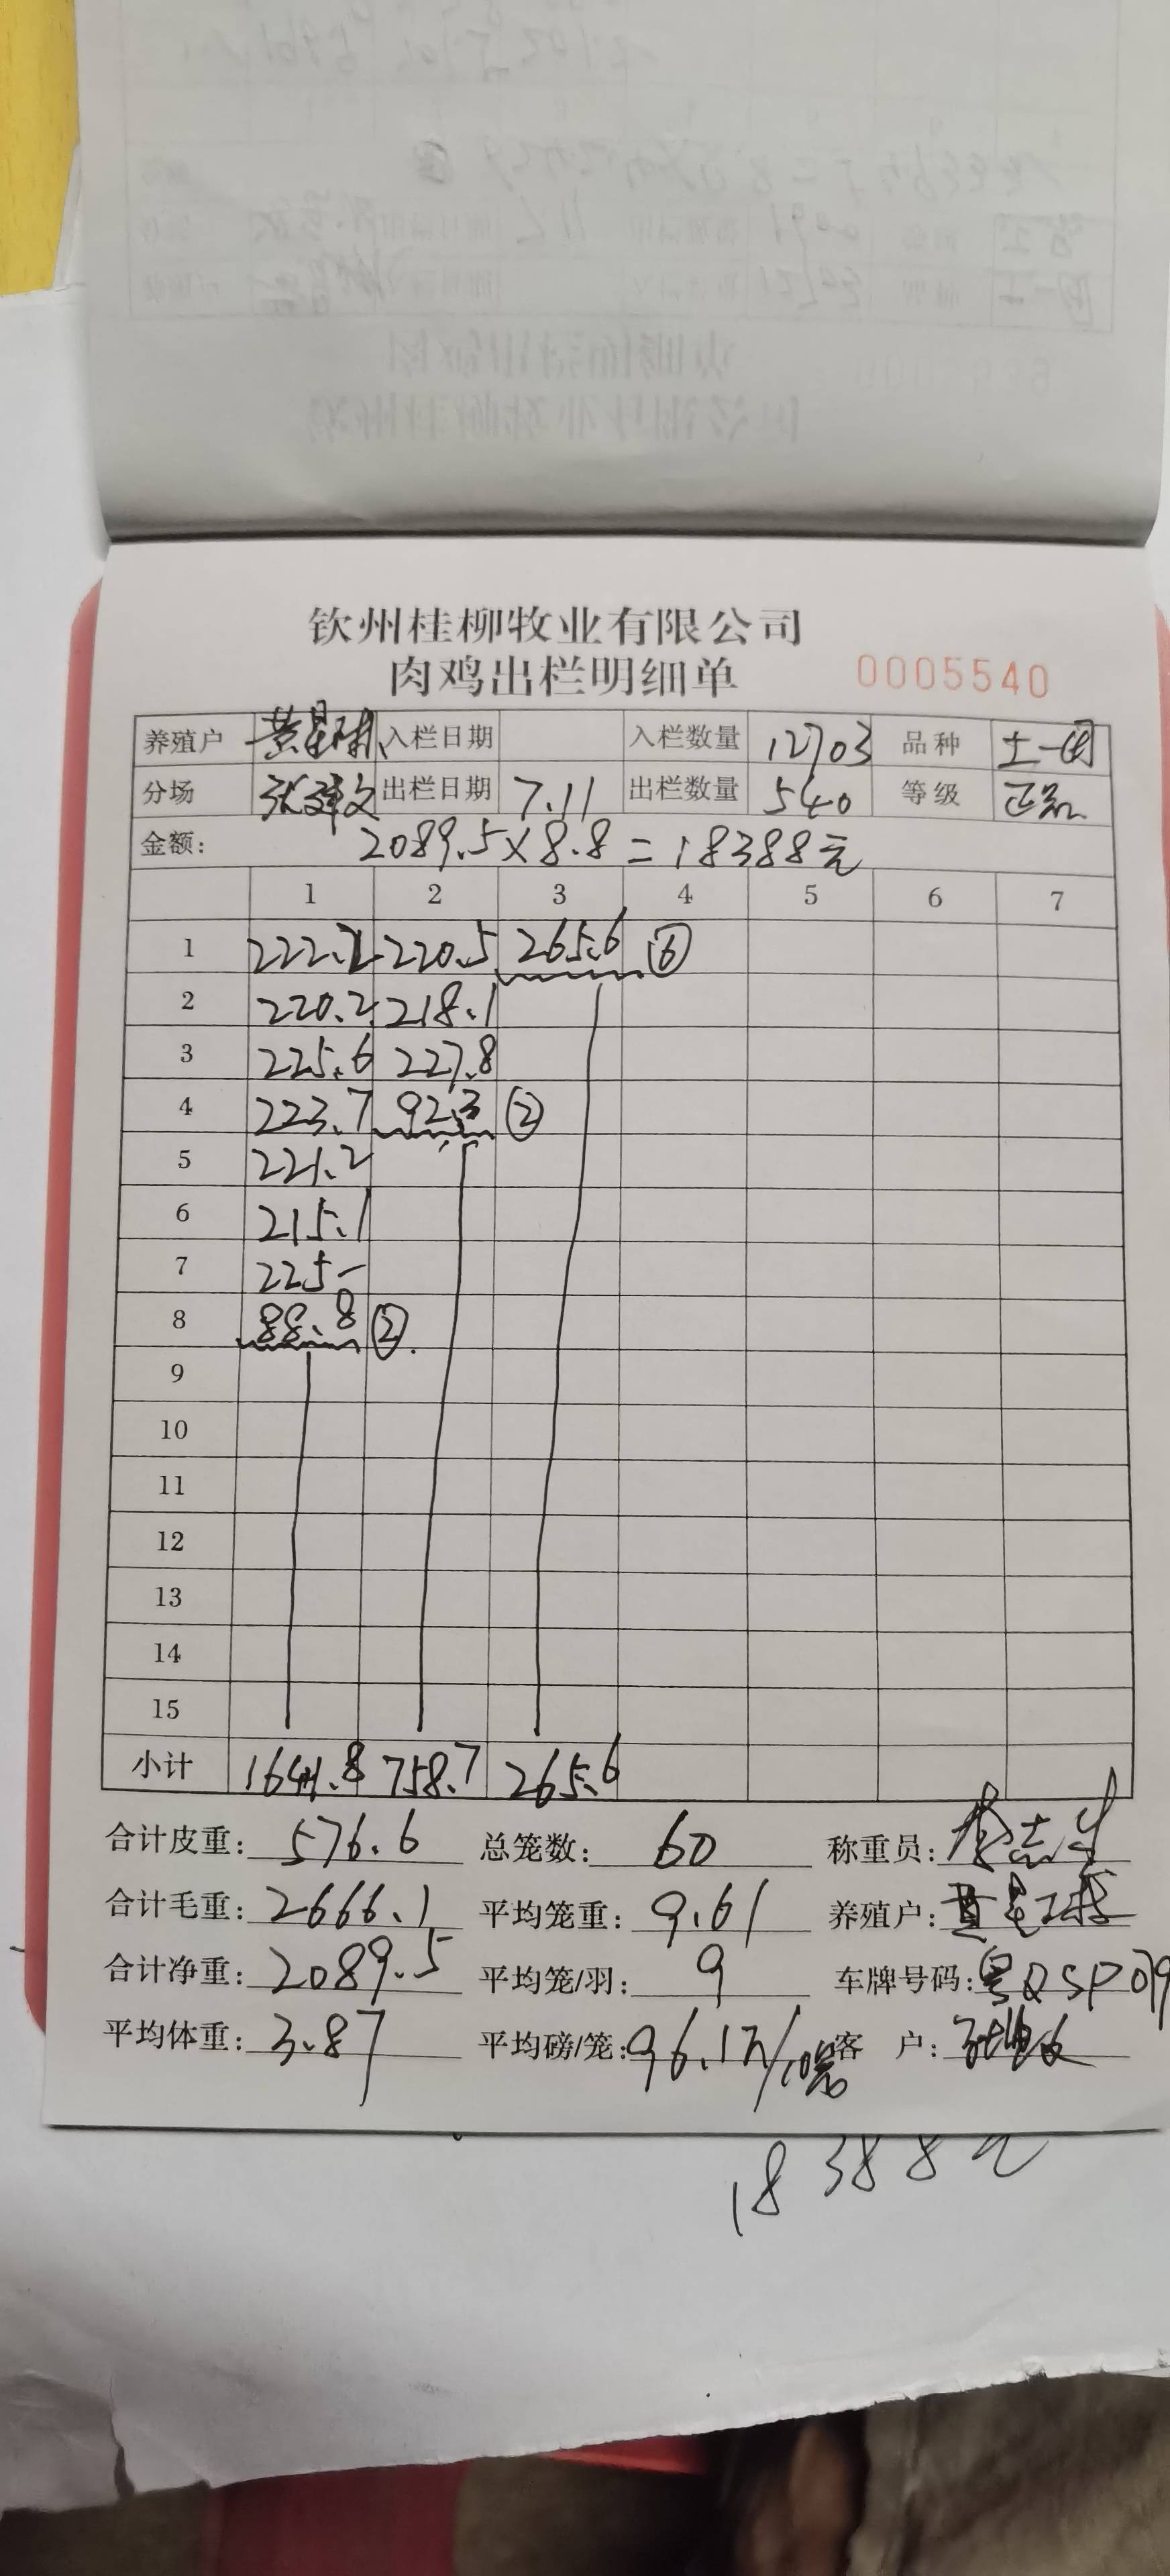 钦州桂柳牧业有限公司
肉鸡出栏明细单 0005540
养殖户 入栏日期 入栏数量 12703 品种 土一
分场 张建文 出栏日期 7.11 出栏数量 540 等级 正
金额: 2089.5×8.8=18388元
1 2 3 4 5 6 7
1 222.2 220.5 265.6 ⑥
2 220.2 218.1
3 225.6 227.8
4 223.7 92.3 ②
5 221.2
6 215.1
7 225-
8 88.8 ②
9
10
11
12
13
14
15
小计 1641.8 758.7 265.6
合计皮重: 576.6 总笼数: 60 称重员:
合计毛重: 2666.1 平均笼重: 9.61 养殖户:
合计净重: 2089.5 平均笼/羽: 9 车牌号码: 粤QSP019
平均体重: 3.87 平均磅/笼: 96.1 客 户:
18388元